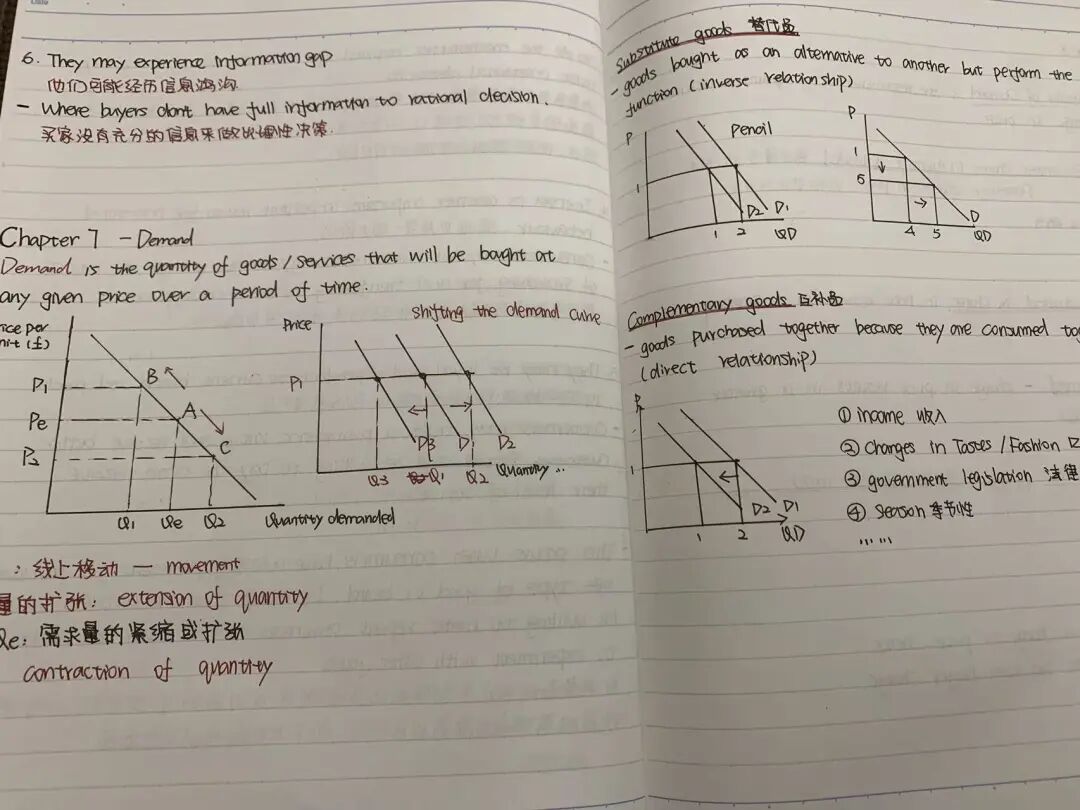 6. They may experience information gap
他们可能经历信息鸿沟
– Where buyers don't have full information to rational decision.
买家没有充分的信息来做出理性决策.
Chapter 7 – Demand
Demand is the quantity of goods/services that will be bought at
any given price over a period of time.
shifting the demand curve
Price
(£)
P1
Pe
P2
B
A
C
Q1 Qe Q2 Quantity demanded
P1
D3 D1 D2
Q3 Q1 Q2 Quantity ...
: 线上移动 — movement
量的扩张: extension of quantity
Qe: 需求量的紧缩或扩张
contraction of quantity
Substitute goods 替代品
- goods bought as an alternative to another but perform the
function (inverse relationship)
P
Pencil
1
D2 D1
1 2 QD
P
1
5
D
4 5 QD
Complementary goods 互补品
- goods purchased together because they are consumed tog
(direct relationship)
1
D2 D1
1 2 QD
① income 收入
② Changes in Tastes/Fashion
③ government legislation 法律
④ Season 季节性
......